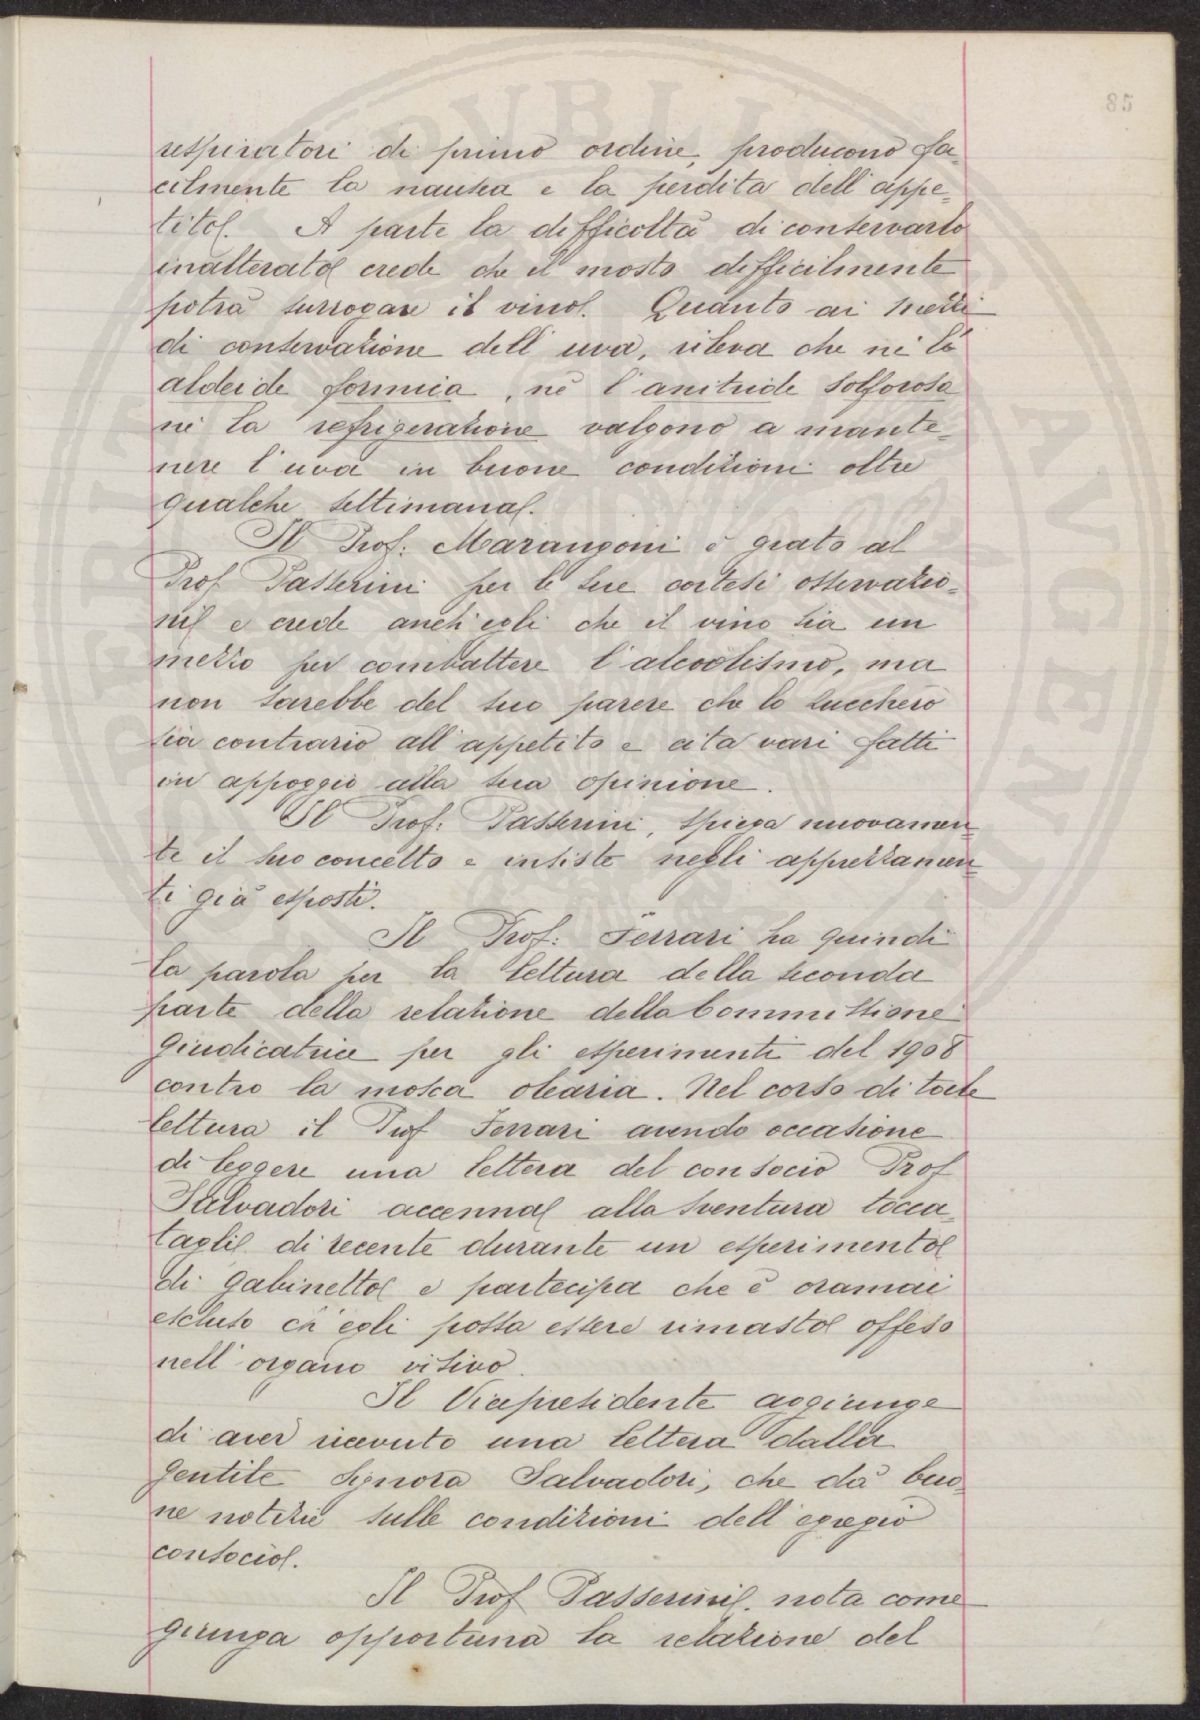 respiratori di primo ordine, producono fa-
cilmente la nausea e la perdita dell'appe-
tito. A parte la difficoltà di conservarlo
inalterato crede che il mosto difficilmente
potrà surrogare il vino. Quanto ai mezzi
di conservazione dell'uva, rileva che nè la
aldeide formica, nè l'anitride solforosa
nè la refrigerazione valgono a mante-
nere l'uva in buone condizioni oltre
qualche settimana.
Il Prof: Marangoni è grato al
Prof Passerini per le sue cortesi osservazio-
ni e crede anch'egli che il vino sia un
mezzo per combattere l'alcoolismo, ma
non sarebbe del suo parere che lo zucchero
sia contrario all'appetito e cita vari fatti
in appoggio alla sua opinione.
Il Prof: Passerini, spiega nuovamen-
te il suo concetto e insiste negli apprezzamen-
ti già esposti.
Il Prof: Ferrari ha quindi
la parola per la lettura della seconda
parte della relazione della Commissione
giudicatrice per gli esperimenti del 1908
contro la mosca olearia. Nel corso di tale
lettura il Prof Ferrari avendo occasione
di leggere una lettera del consocio Prof
Salvadori accenna alla sventura tocca-
tagli di recente durante un esperimento
di gabinetto e partecipa che è oramai
escluso ch'egli possa essere rimasto offeso
nell'organo visivo.
Il Vicepresidente aggiunge
di aver ricevuto una lettera dalla
gentile Signora Salvadori, che dà buo-
ne notizie sulle condizioni dell'egregio
consocio.
Il Prof Passerini. nota come
giunga opportuna la relazione del